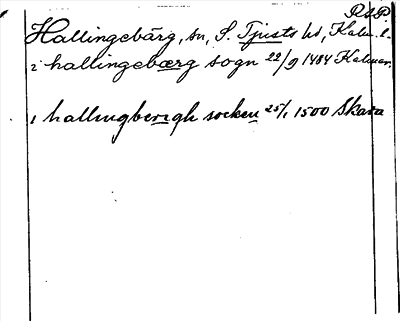 RAP
Hallingebärg, sn, S. Tjusts hd, Kalm. l.
i hallingebærg sogn 22/9 1484 Kalmar.
i hallingberigh socken 25/1 1500 Skara